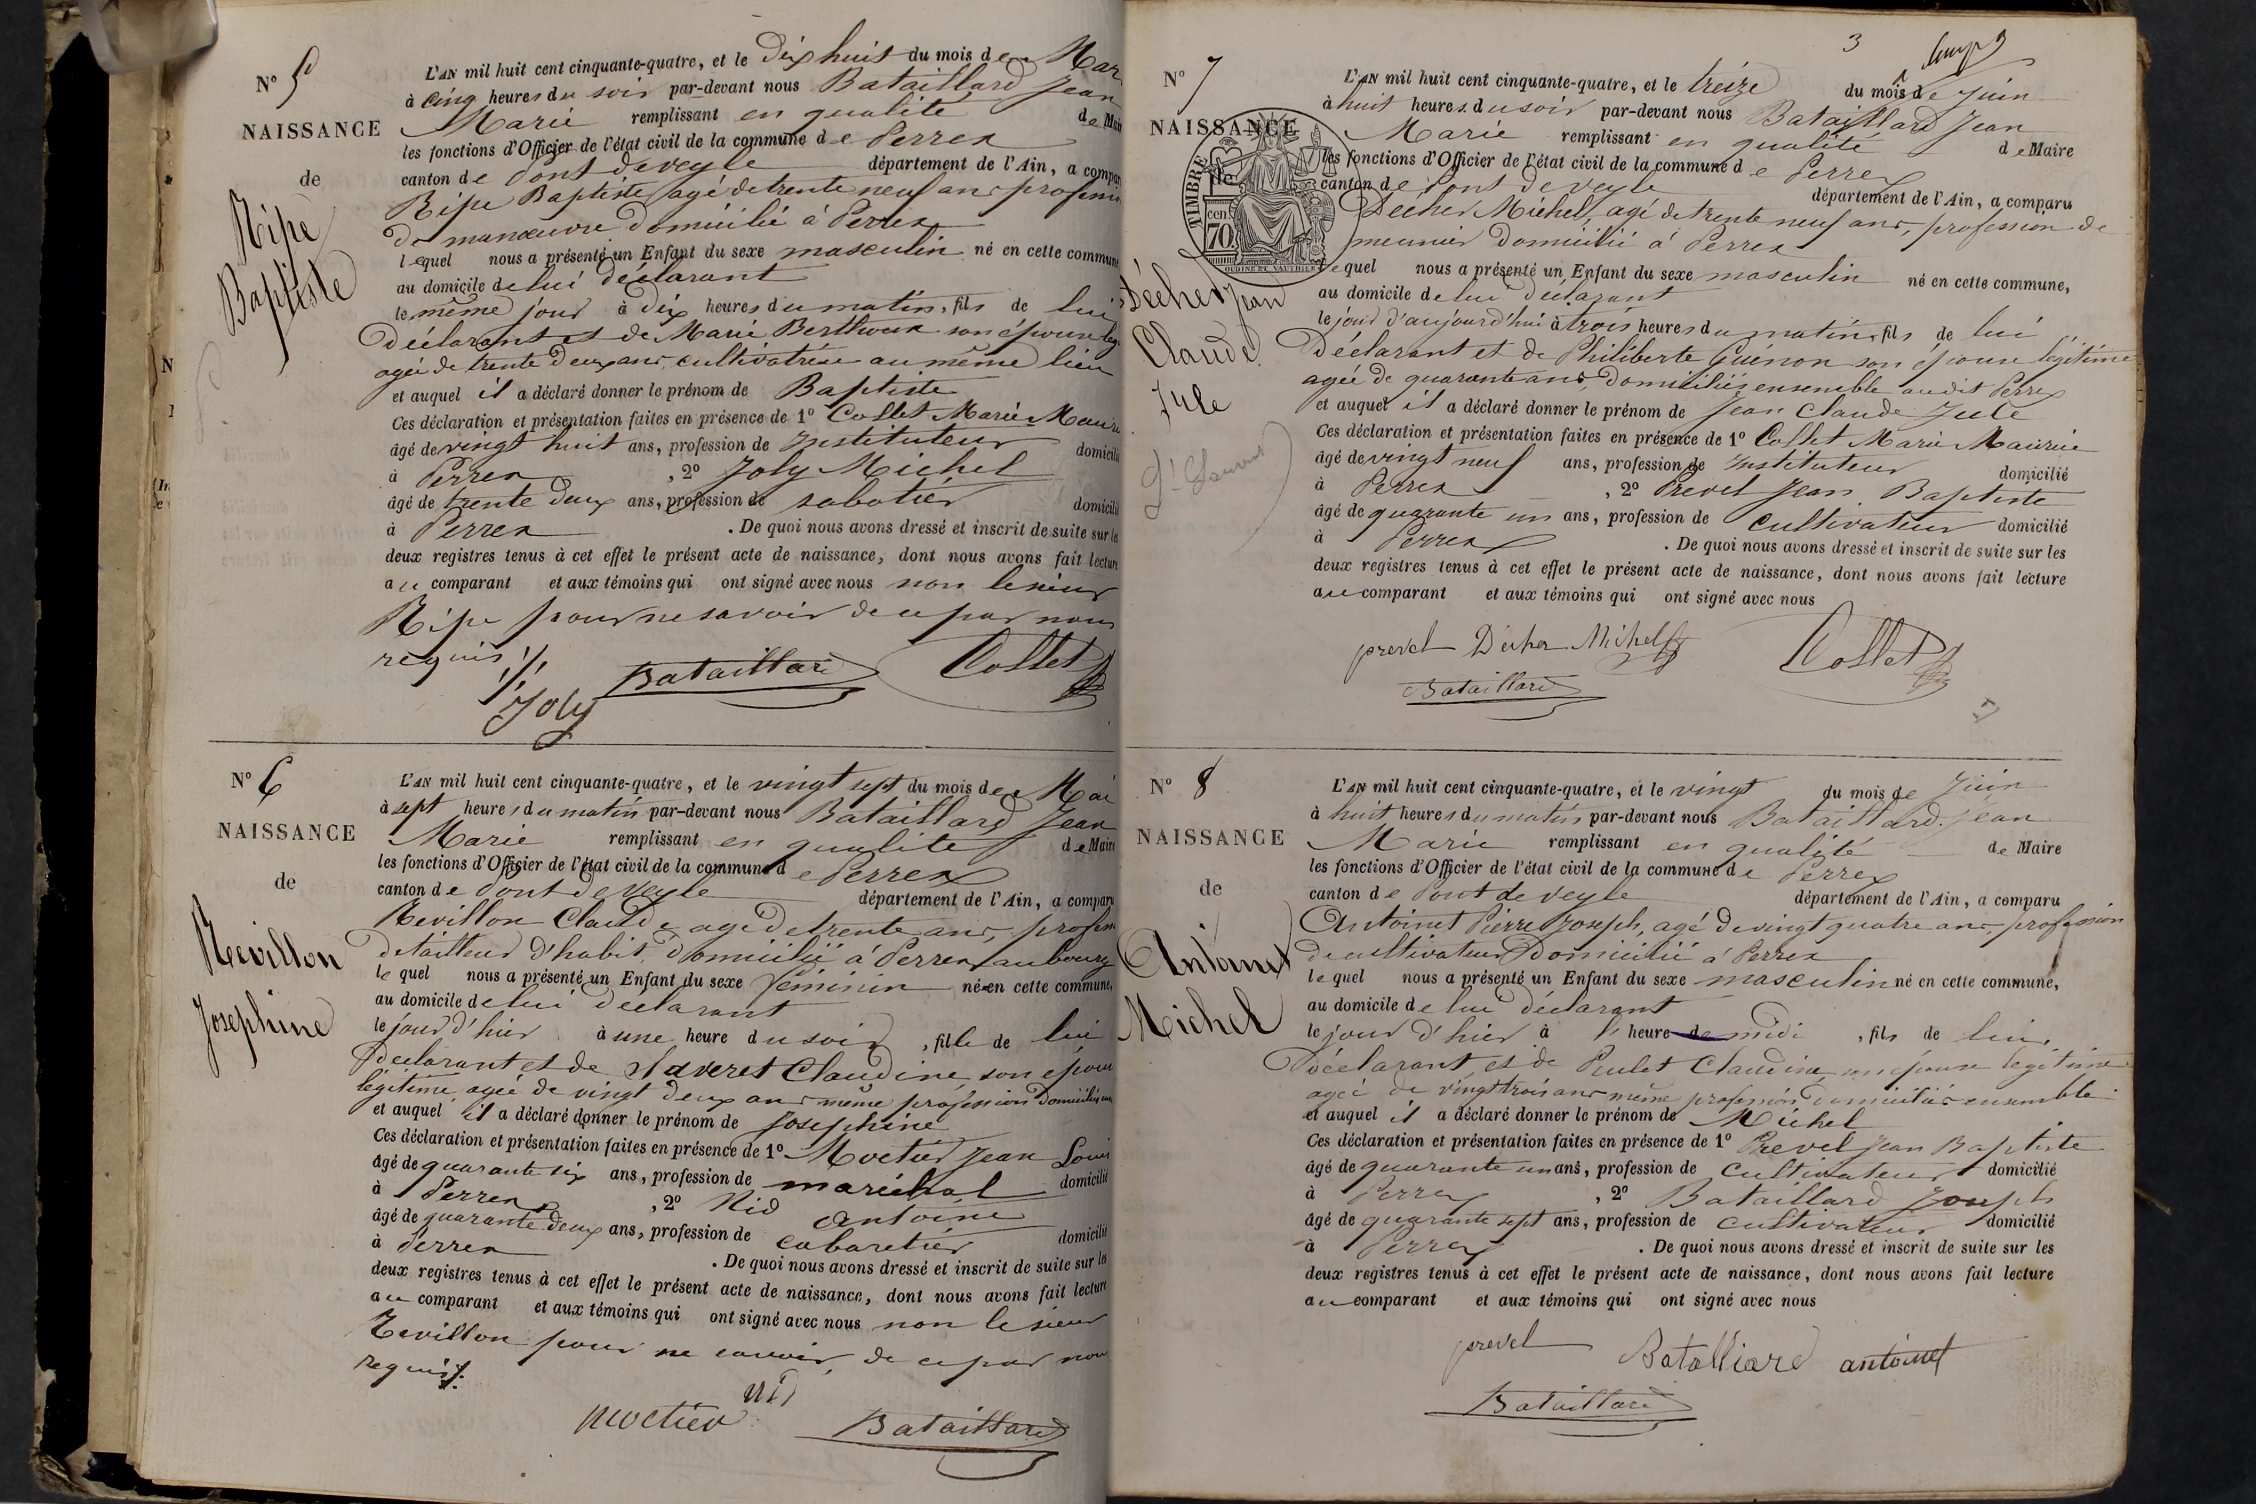 N° 5
NAISSANCE
de
Ripe
Baptiste
L'AN mil huit cent cinquante-quatre, et le dix huit du mois de Mar
à cinq heures du soir par-devant nous Bataillard Jean
Marie remplissant en qualité de Mair
les fonctions d'Officier de l'état civil de la commune de Perrex
canton de Pont de veyle département de l'Ain, a compar
Ripe Baptiste agé de trente neuf ans profession
de manœuvre domicilié à Perrex
lequel nous a présenté un Enfant du sexe masculin né en cette commune
au domicile de lui déclarant
le même jour à dix heures du matin, fils de lui
déclarant et de Marie Berthoux son épouse leg
agée de trente deux ans, cultivatrice au même lieu
et auquel il a déclaré donner le prénom de Baptiste
Ces déclaration et présentation faites en présence de 1° Collet Marie Mauri
âgé de vingt huit ans, profession de Instituteur domicilié
à Perrex, 2° Joly Michel
âgé de trente deux ans, profession de sabotier domicilié
à Perrex. De quoi nous avons dressé et inscrit de suite sur les
deux registres tenus à cet effet le présent acte de naissance, dont nous avons fait lecture
au comparant et aux témoins qui ont signé avec nous non le sieur
Ripe pour ne savoir de ce par nous
requis
Joly Bataillard Collet
N° 6
NAISSANCE
de
Revillon
Josephine
L'AN mil huit cent cinquante-quatre, et le vingt sept du mois de Mai
à sept heures du matin par-devant nous Bataillard Jean
Marie remplissant en qualité de Maire
les fonctions d'Officier de l'état civil de la commune de Perrex
canton de Pont de Veyle département de l'Ain, a comparu
Revillon Claude, agé de trente ans, profess
de tailleur d'habit, domicilié à Perrex au bourg
lequel nous a présenté un Enfant du sexe féminin né en cette commune,
au domicile de lui déclarant
le jour d'hier à une heure du soir, fille de lui
déclarant et de Claudine son épouse
légitime, agée de vingt deux ans même profession domiciliés
et auquel il a déclaré donner le prénom de Josephine
Ces déclaration et présentation faites en présence de 1° Moetier Jean Louis
âgé de quarante six ans, profession de maréchal domicilié
à Perrex, 2° Nid Antoine
âgé de quarante deux ans, profession de cabaretier domicilié
à Perrex. De quoi nous avons dressé et inscrit de suite sur les
deux registres tenus à cet effet le présent acte de naissance, dont nous avons fait lecture
au comparant et aux témoins qui ont signé avec nous non le sieur
Revillon pour ne savoir, de ce par nous
requis
moetier nid Bataillard
3
N° 7
NAISSANCE
de
TIMBRE
cen. 70
OUDINE ET VAUTHIER
Décher Jean
Claude
Jule
L'AN mil huit cent cinquante-quatre, et le treize du mois de Juin
à huit heures du soir par-devant nous Bataillard Jean
Marie remplissant en qualité de Maire
les fonctions d'Officier de l'état civil de la commune de Perrex
canton de Pont de Veyle département de l'Ain, a comparu
Décher Michel, agé de trente neuf ans, profession de
meunier domicilié à Perrex
lequel nous a présenté un Enfant du sexe masculin né en cette commune,
au domicile de lui déclarant
le jour d'aujourd'hui à trois heures du matin, fils de lui
déclarant et de Philiberte Guenon son épouse légitime
agée de quarante ans, domiciliés ensemble audit Perrex
et auquel il a déclaré donner le prénom de Jean Claude Jule
Ces déclaration et présentation faites en présence de 1° Collet Marie Maurice
âgé de vingt neuf ans, profession de Instituteur domicilié
à Perrex, 2° Prevel Jean Baptiste
âgé de quarante un ans, profession de cultivateur domicilié
à Perrex. De quoi nous avons dressé et inscrit de suite sur les
deux registres tenus à cet effet le présent acte de naissance, dont nous avons fait lecture
au comparant et aux témoins qui ont signé avec nous
prevel Décher Michel Collet
Bataillard
N° 8
NAISSANCE
de
Antoinet
Michel
L'AN mil huit cent cinquante-quatre, et le vingt du mois de Juin
à huit heures du matin par-devant nous Bataillard Jean
Marie remplissant en qualité de Maire
les fonctions d'Officier de l'état civil de la commune de Perrex
canton de Pont de Veyle département de l'Ain, a comparu
Antoinet Pierre Joseph, agé de vingt quatre ans profession
de cultivateur domicilié à Perrex
lequel nous a présenté un Enfant du sexe masculin né en cette commune,
au domicile de lui déclarant
le jour d'hier à l'heure de midi, fils de lui,
déclarant, et de Claudine son épouse légitime
agée de vingt trois ans même profession domiciliés ensemble
et auquel il a déclaré donner le prénom de Michel
Ces déclaration et présentation faites en présence de 1° Prevel Jean Baptiste
âgé de quarante un ans, profession de cultivateur domicilié
à Perrex, 2° Bataillard Joseph
âgé de quarante sept ans, profession de cultivateur domicilié
à Perrex. De quoi nous avons dressé et inscrit de suite sur les
deux registres tenus à cet effet le présent acte de naissance, dont nous avons fait lecture
au comparant et aux témoins qui ont signé avec nous
prevel Batalliard antoinet
Bataillard